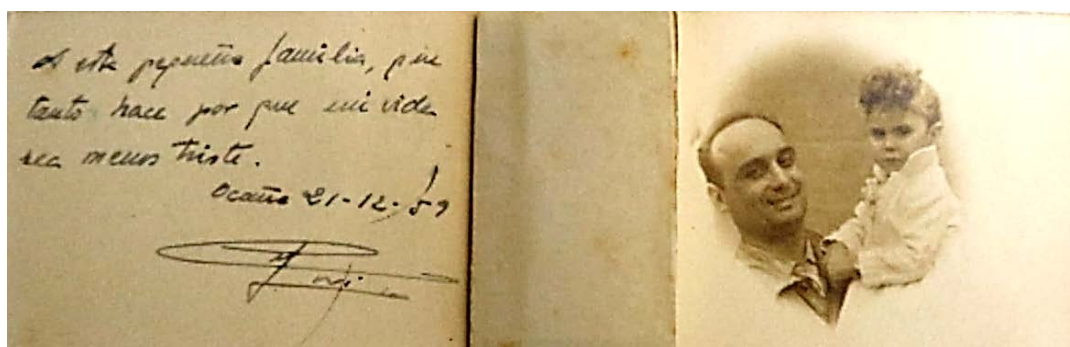 A esta pequeña familia, que
tanto hace por que mi vida
sea menos triste.
Ocaña 21-12-59